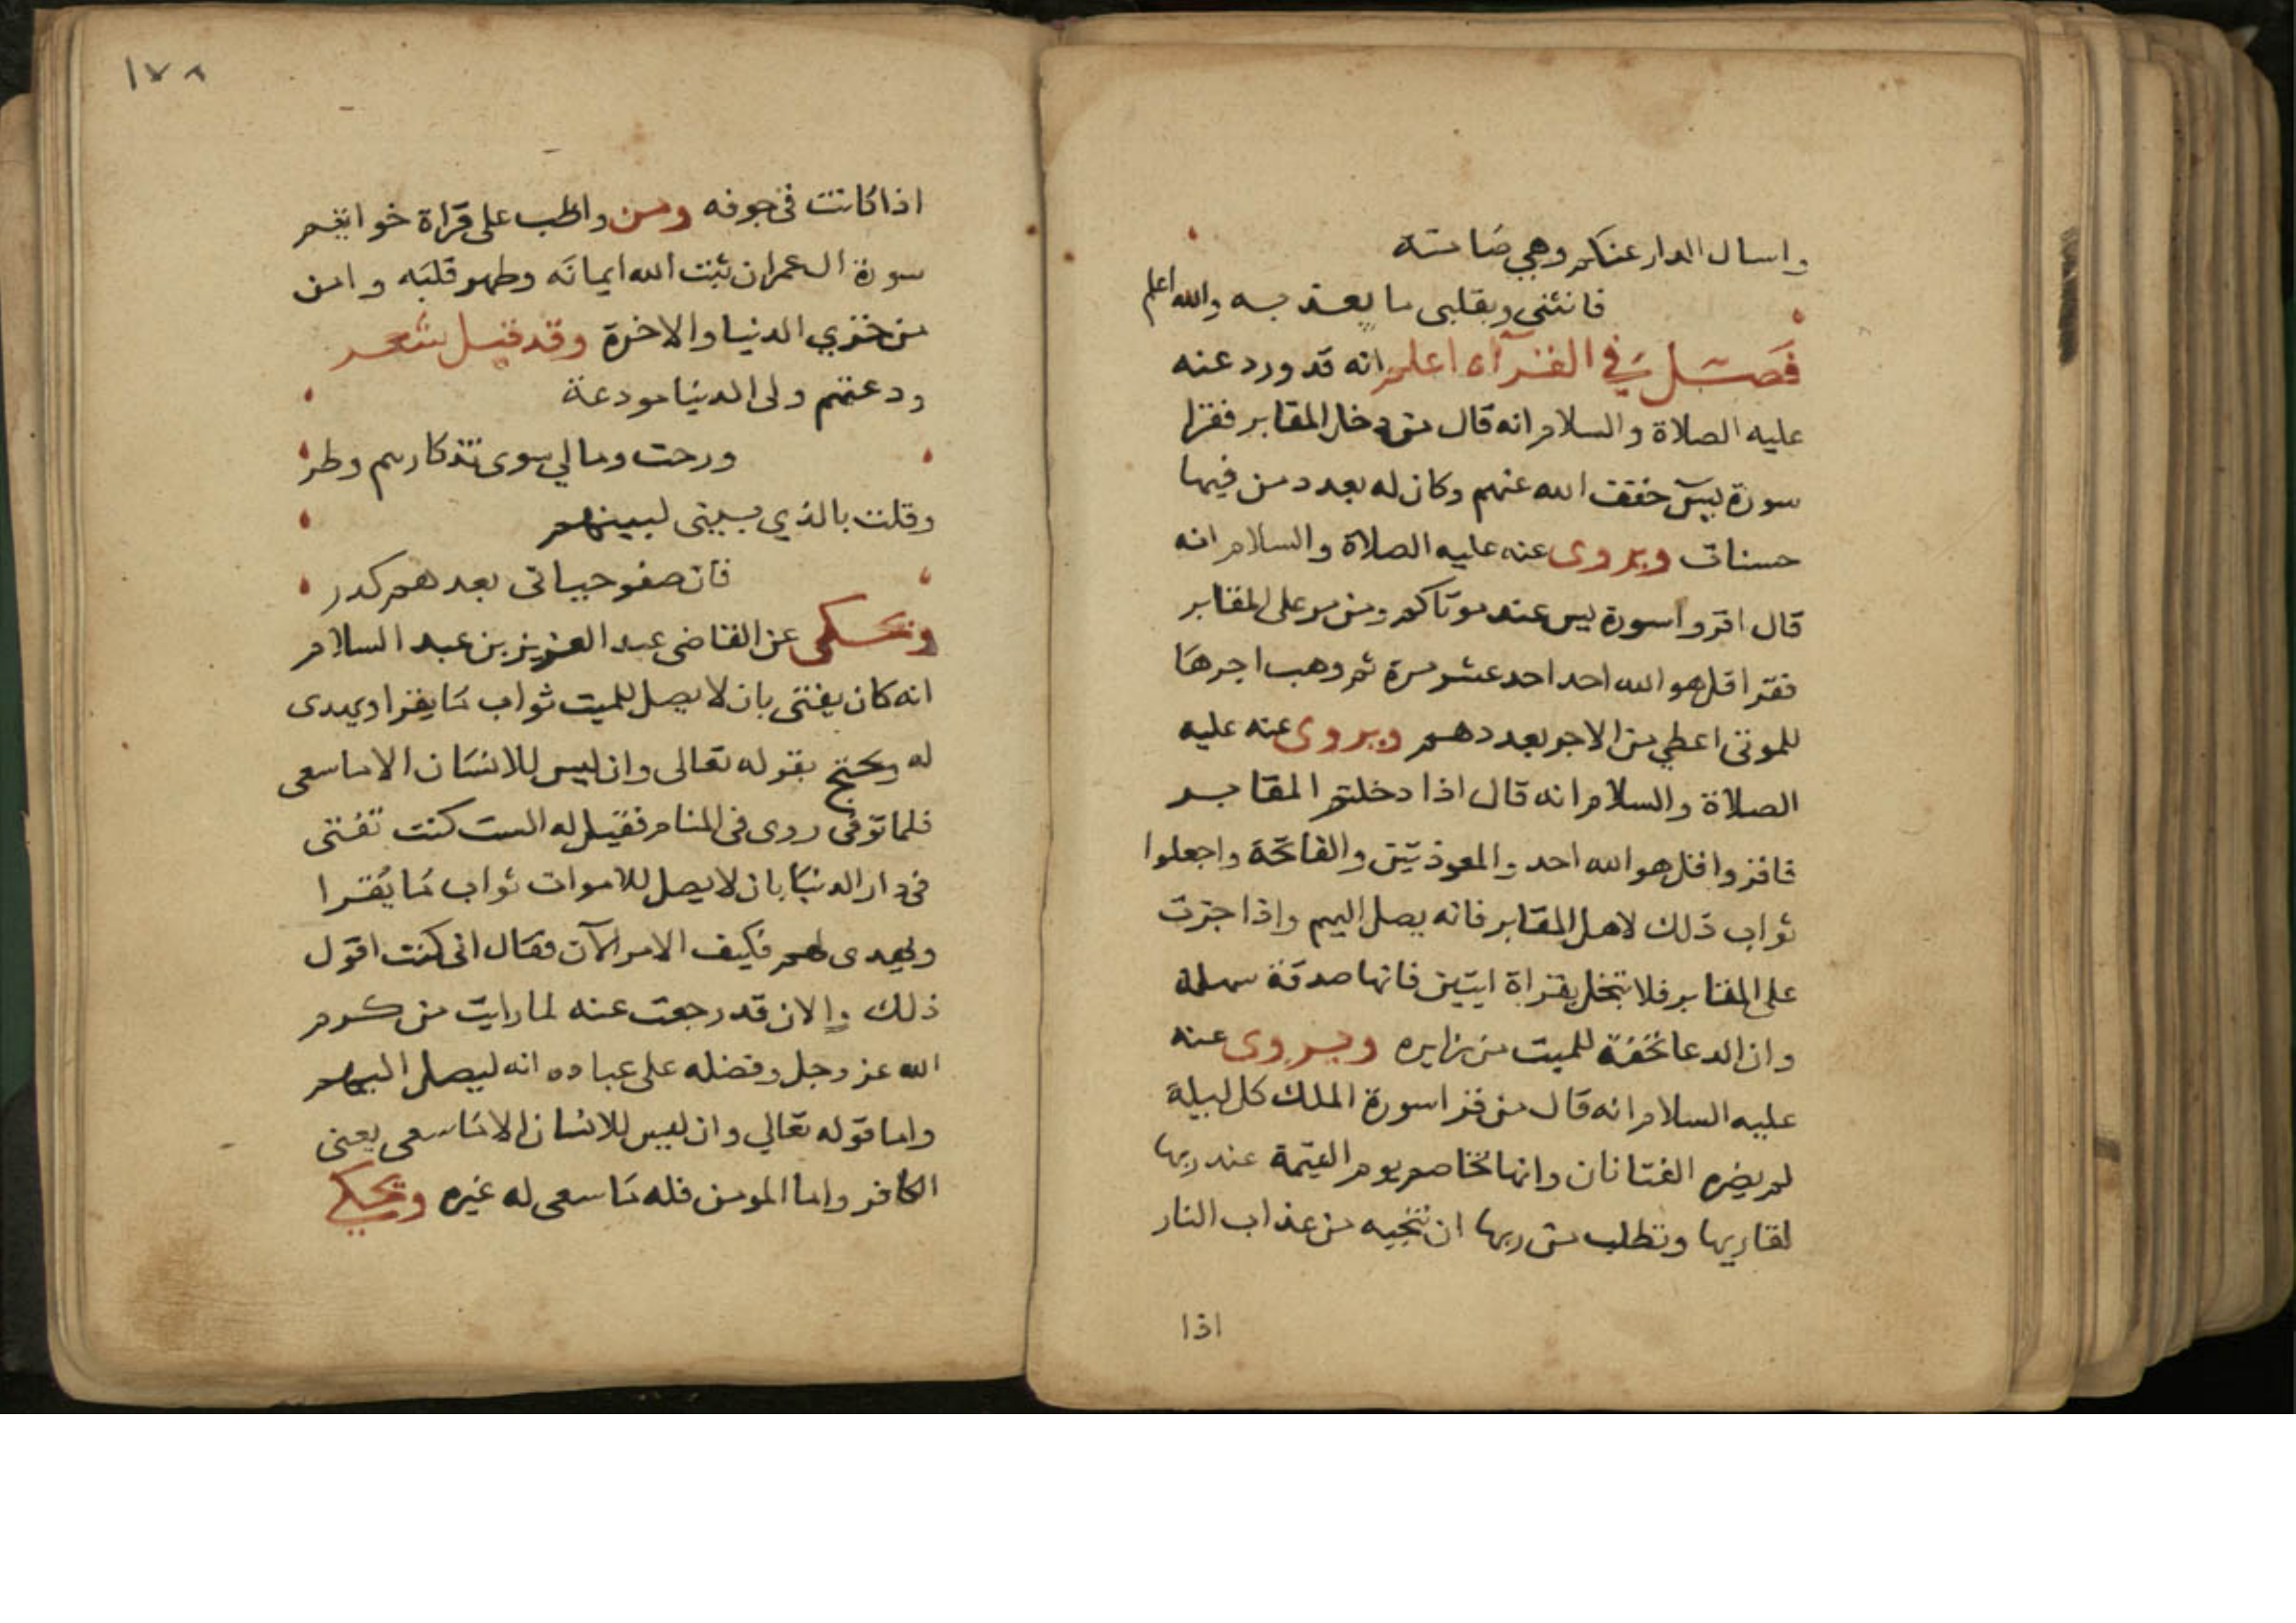 واسال الدار عنكم وهي صامتة
فانثنى وبقلبى ما يعذبه والله اعلم
فصل في القرآه اعلم انه قد ورد عنه
عليه الصلاة والسلام انه قال من دخل المقابر فقرا
سورة يس خفف الله عنهم وكان له بعدد من فيها
حسنات ويروى عنه عليه الصلاة والسلام انه
قال اقروا سورة يس عند موتاكم ومن مر على المقابر
فقرا قل هو الله احد احد عشر مرة ثم وهب اجرها
للموتى اعطي من الاجر بعددهم ويروى عنه عليه
الصلاة والسلام انه قال اذا دخلتم المقابر
فاقروا قل هو الله احد والمعوذتين والفاتحة واجعلوا
ثواب ذلك لاهل المقابر فانه يصل اليهم واذا جزت
على المقابر فلا تبخل بقراة ايتين فانها صدقة سهلة
وان الدعا تحفة للميت من زايره ويروى عنه
عليه السلام انه قال من قرا سورة الملك كل ليلة
لم يضره الفتانان وانها تخاصم يوم القيمة عند ربها
لقاريها وتطلب من ربها ان تنجيه من عذاب النار
اذا
١٧٨
اذا كانت فى جوفه ومن واظب على قراة خواتيم
سورة ال عمران ثبت الله ايمانه وطهر قلبه وامن
من خزي الدنيا والاخرة وقد قيل شعر
ودعتهم ولى الدنيا مودعة
ورحت ومالي سوى تذكارهم وطر
وقلت بالذي بينى لبينهم
فان صفو حياتى بعدهم كدر
وتحكى عن القاضى عبد العزيز بن عبد السلام
انه كان يفتى بان لا يصل للميت ثواب ما يقرا ويهدى
له ويحتج بقوله تعالى وان ليس للانسان الا ما سعى
فلما توفى روى فى المنام فقيل له الست كنت تفتى
فى دار الدنيا بان لا يصل للاموات ثواب ما يقرا
ويهدى لهم فكيف الامر الآن فقال انى كنت اقول
ذلك والان قد رجعت عنه لما رايت من كرم
الله عز وجل وفضله على عباده انه ليصل اليهم
واما قوله تعالي وان ليس للانسان الا ما سعى يعنى
الكافر واما المومن فله ما سعى له غيره وتحكي